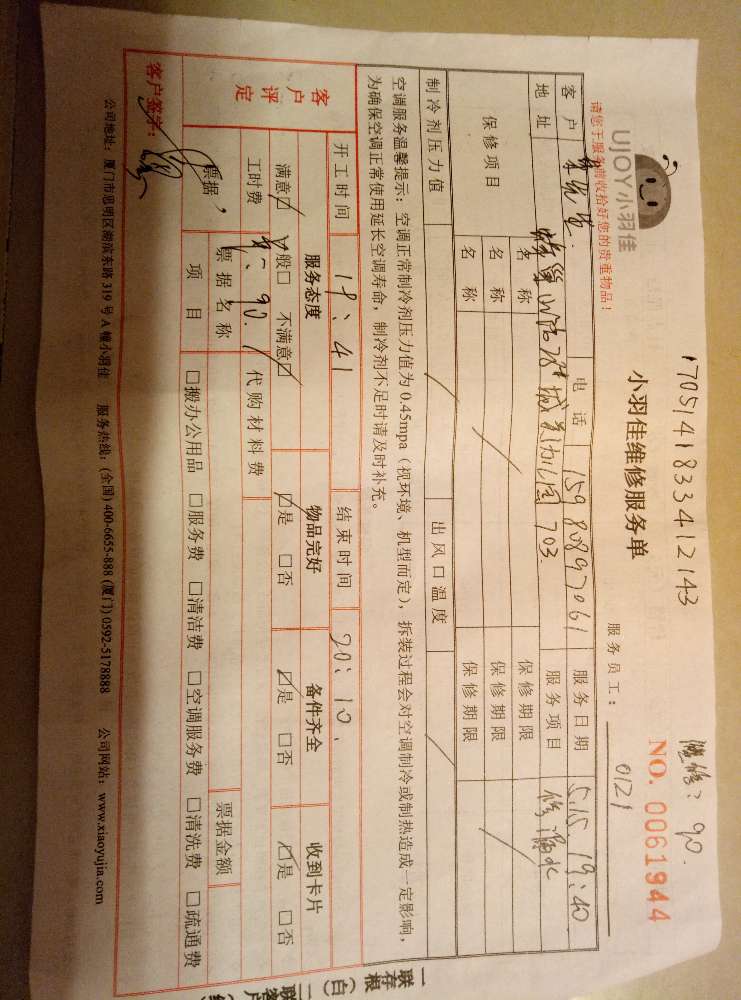 1705141833412143
维修：90.
UJOY小羽佳
小羽佳维修服务单
NO. 0061944
请您于服务前收拾好您的贵重物品！
服务员工： 0121
客户 电话 15980897061 服务日期 5.15. 19:40
地址 703. 服务项目 修漏水
保修项目 名称 保修期限
名称 保修期限
名称 保修期限
制冷剂压力值 出风口温度
空调服务温馨提示：空调正常制冷剂压力值为 0.45mpa（视环境、机型而定），拆装过程会对空调制冷或制热造成一定影响，
为确保空调正常使用延长空调寿命，制冷剂不足时请及时补充。
开工时间 19:41 结束时间 20:10.
客户评定 服务态度 物品完好 备件齐全 收到卡片
满意□ 一般□ 不满意□ □是 □否 □是 □否 □是 □否
工时费 90. 代购材料费
票据， 票据名称 票据金额
项目 □搬办公用品 □服务费 □清洁费 □空调服务费 □清洗费 □疏通费
客户签字：
公司地址：厦门市思明区湖滨东路 319 号 A 幢小羽佳 服务热线：(全国) 400-6655-888 (厦门) 0592-5178888 公司网站：www.xiaoyujia.com
一联存根（白）二联客户